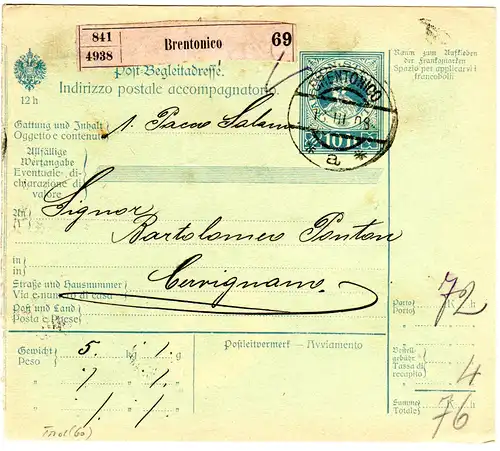 841
4938
Brentonico
69
Post-Begleitadresse.
Indirizzo postale accompagnatorio.
12 h
BRENTONICO
III 08
* a *
10
Raum zum Aufkleben
der Frankomarken
Spazio per applicarvi i
francobolli.
Gattung und Inhalt
Oggetto e contenuto
1. Pacco Salami
Allfällige
Wertangabe
Eventuale di-
chiarazione di
valore
An
Signor
Bartolomeo Ponton
in
in
Cervignano
Straße und Hausnummer
Via e numero di casa
Post und Land
Posta e Paese
Porto
Porto
K h
72
Bestell-
gebühr
Tassa di
recapito
4
Summe
Totale
K h
76
Gewicht
Peso
5. kg 1. g
Postleitvermerk — Avviamento
Tirol (60)